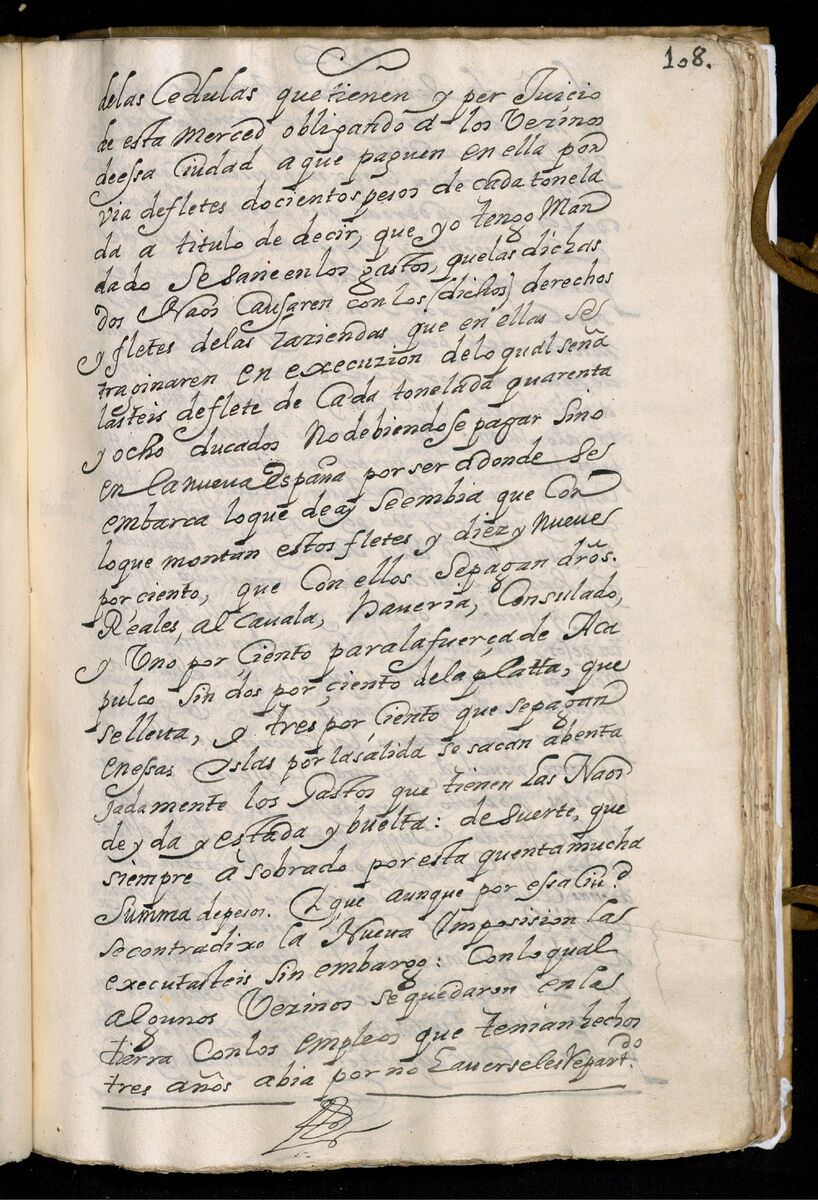 108.
delas Cedulas que tienen y per Juicio
de esta Merced obligando a los Vezinos
deessa Ciudad a que paguen en ella por
via defletes docientos pesos de cada tonela
da a titulo de decir, que yo tengo Man
dado Se Sane en los gastos, quelas dichas
dos Naos Causaren con los (dichos) derechos
y fletes delas haziendas que en ellas se
traginaren en execuzion delo qual seña
lasteis deflete de Cada tonelada quarenta
y ocho ducados No debiendose pagar Sino
en la nueva España por ser adonde Se
embarca lo que de ay Seembia que Con
loque montan estos fletes y diez y Nueve
por ciento, que Con ellos Sepagan dros.
Reales, alcavala, haveria, Consulado,
y Uno por Ciento para la fuerça de Aca
pulco sin dos por ciento dela platta, que
selleva, y tres por Ciento que sepagan
enessas Yslas por la sálida se sacan abenta
jadamente los Gastos que tienen las Naos
de y da y estada y buelta: de Suerte, que
siempre à sobrado por esta quenta mucha
Summa depesos. Y que aunque por essa Ciu.d
secontradixo la Nueva Imposision las
executasteis sin embargo: Conlo qual
algunos Vezinos se quedaron en la
tierra Conlos empleos que tenian hechos
tres años abia por no haverseles repart.do